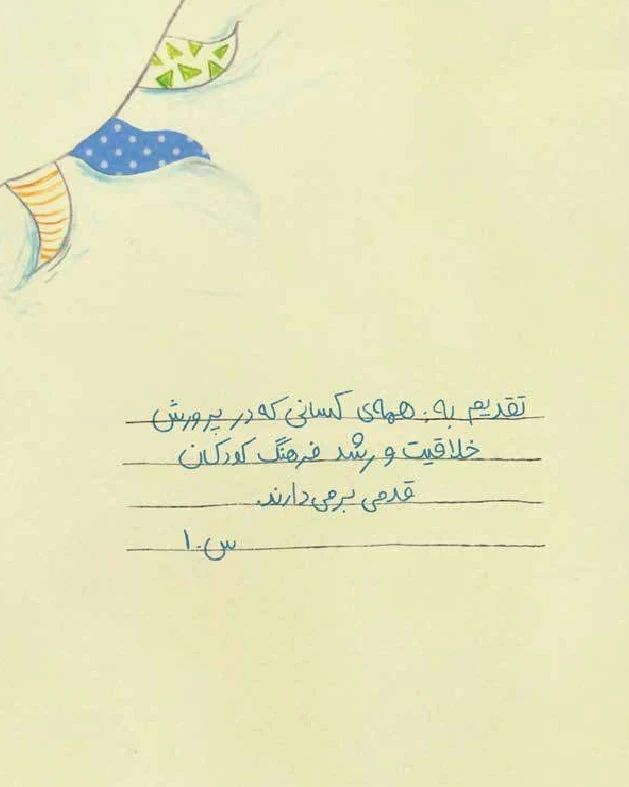 تقدیم به: همه‌ی کسانی که در پرورش
خلاقیت و رشد فرهنگ کودکان
قدمی برمی‌دارند.
س.ا